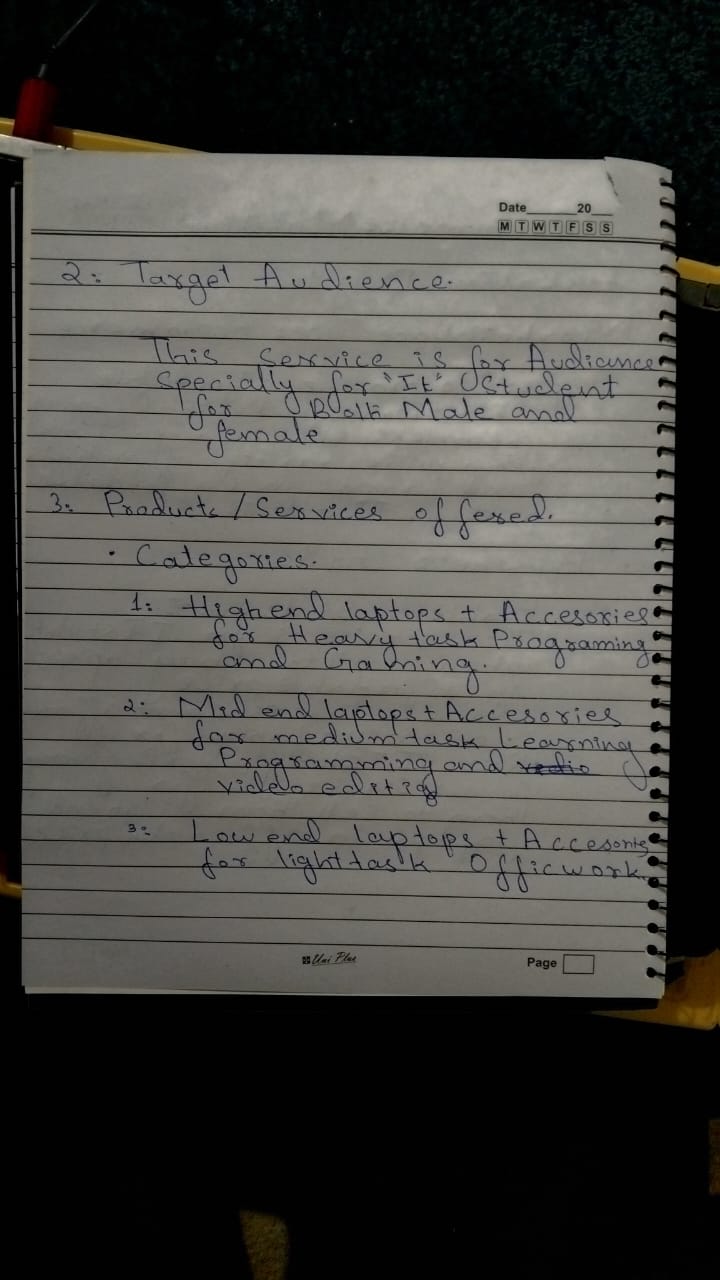 Date 20
M T W T F S S
2: Target Audience.
This Service is for Audiance
Specially for "It" Student
for Both Male and
female
3: Products / Services offered.
• Categories.
1: High end laptops + Accesories
for Heavy task Programing
and Gaming.
2: Mid end laptops + Accesories
for medium task Learning
Programming and vedio
video editig
3: Low end laptops + Accesories
for light task Offic work.
Uni Plus
Page